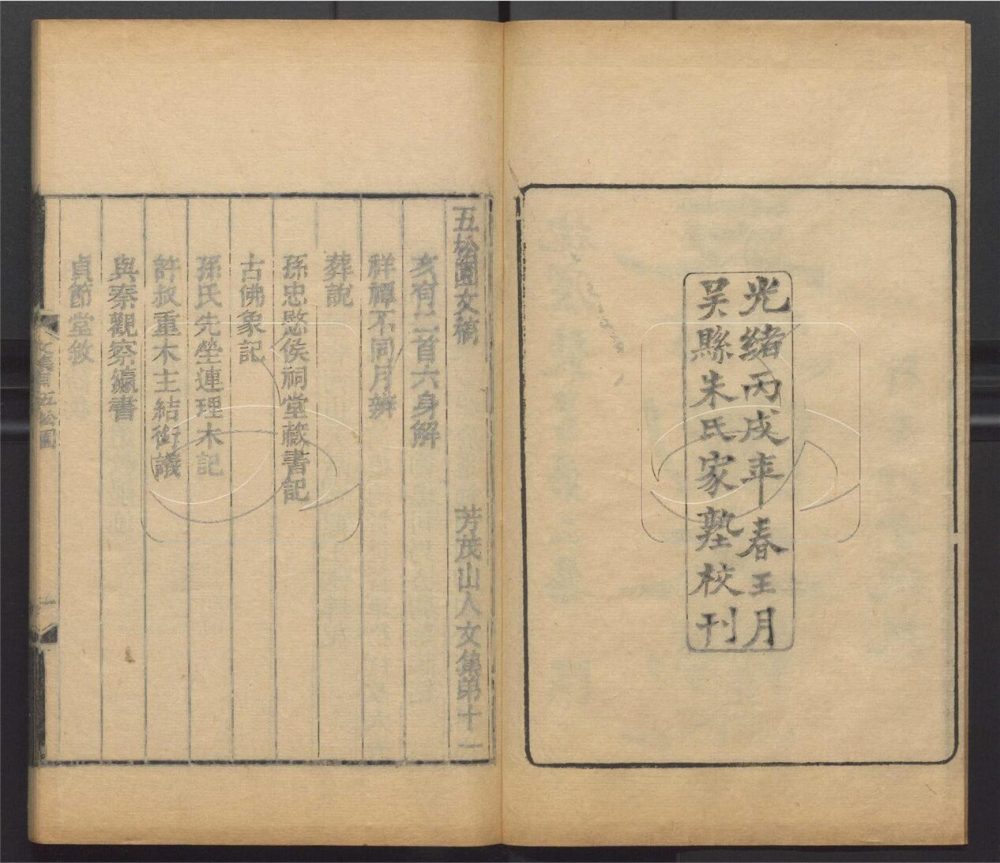 光緒丙戌年春王月
吴縣朱氏家塾校刊
五松園文稿 芳茂山人文集第十一
亥有二首六身解
祥禫不同月辨
葬說
孫忠愍侯祠堂藏書記
古佛象記
孫氏先坐連理木記
許叔重木主結銜議
與秦觀察瀛書
貞節堂敘
五松園
一